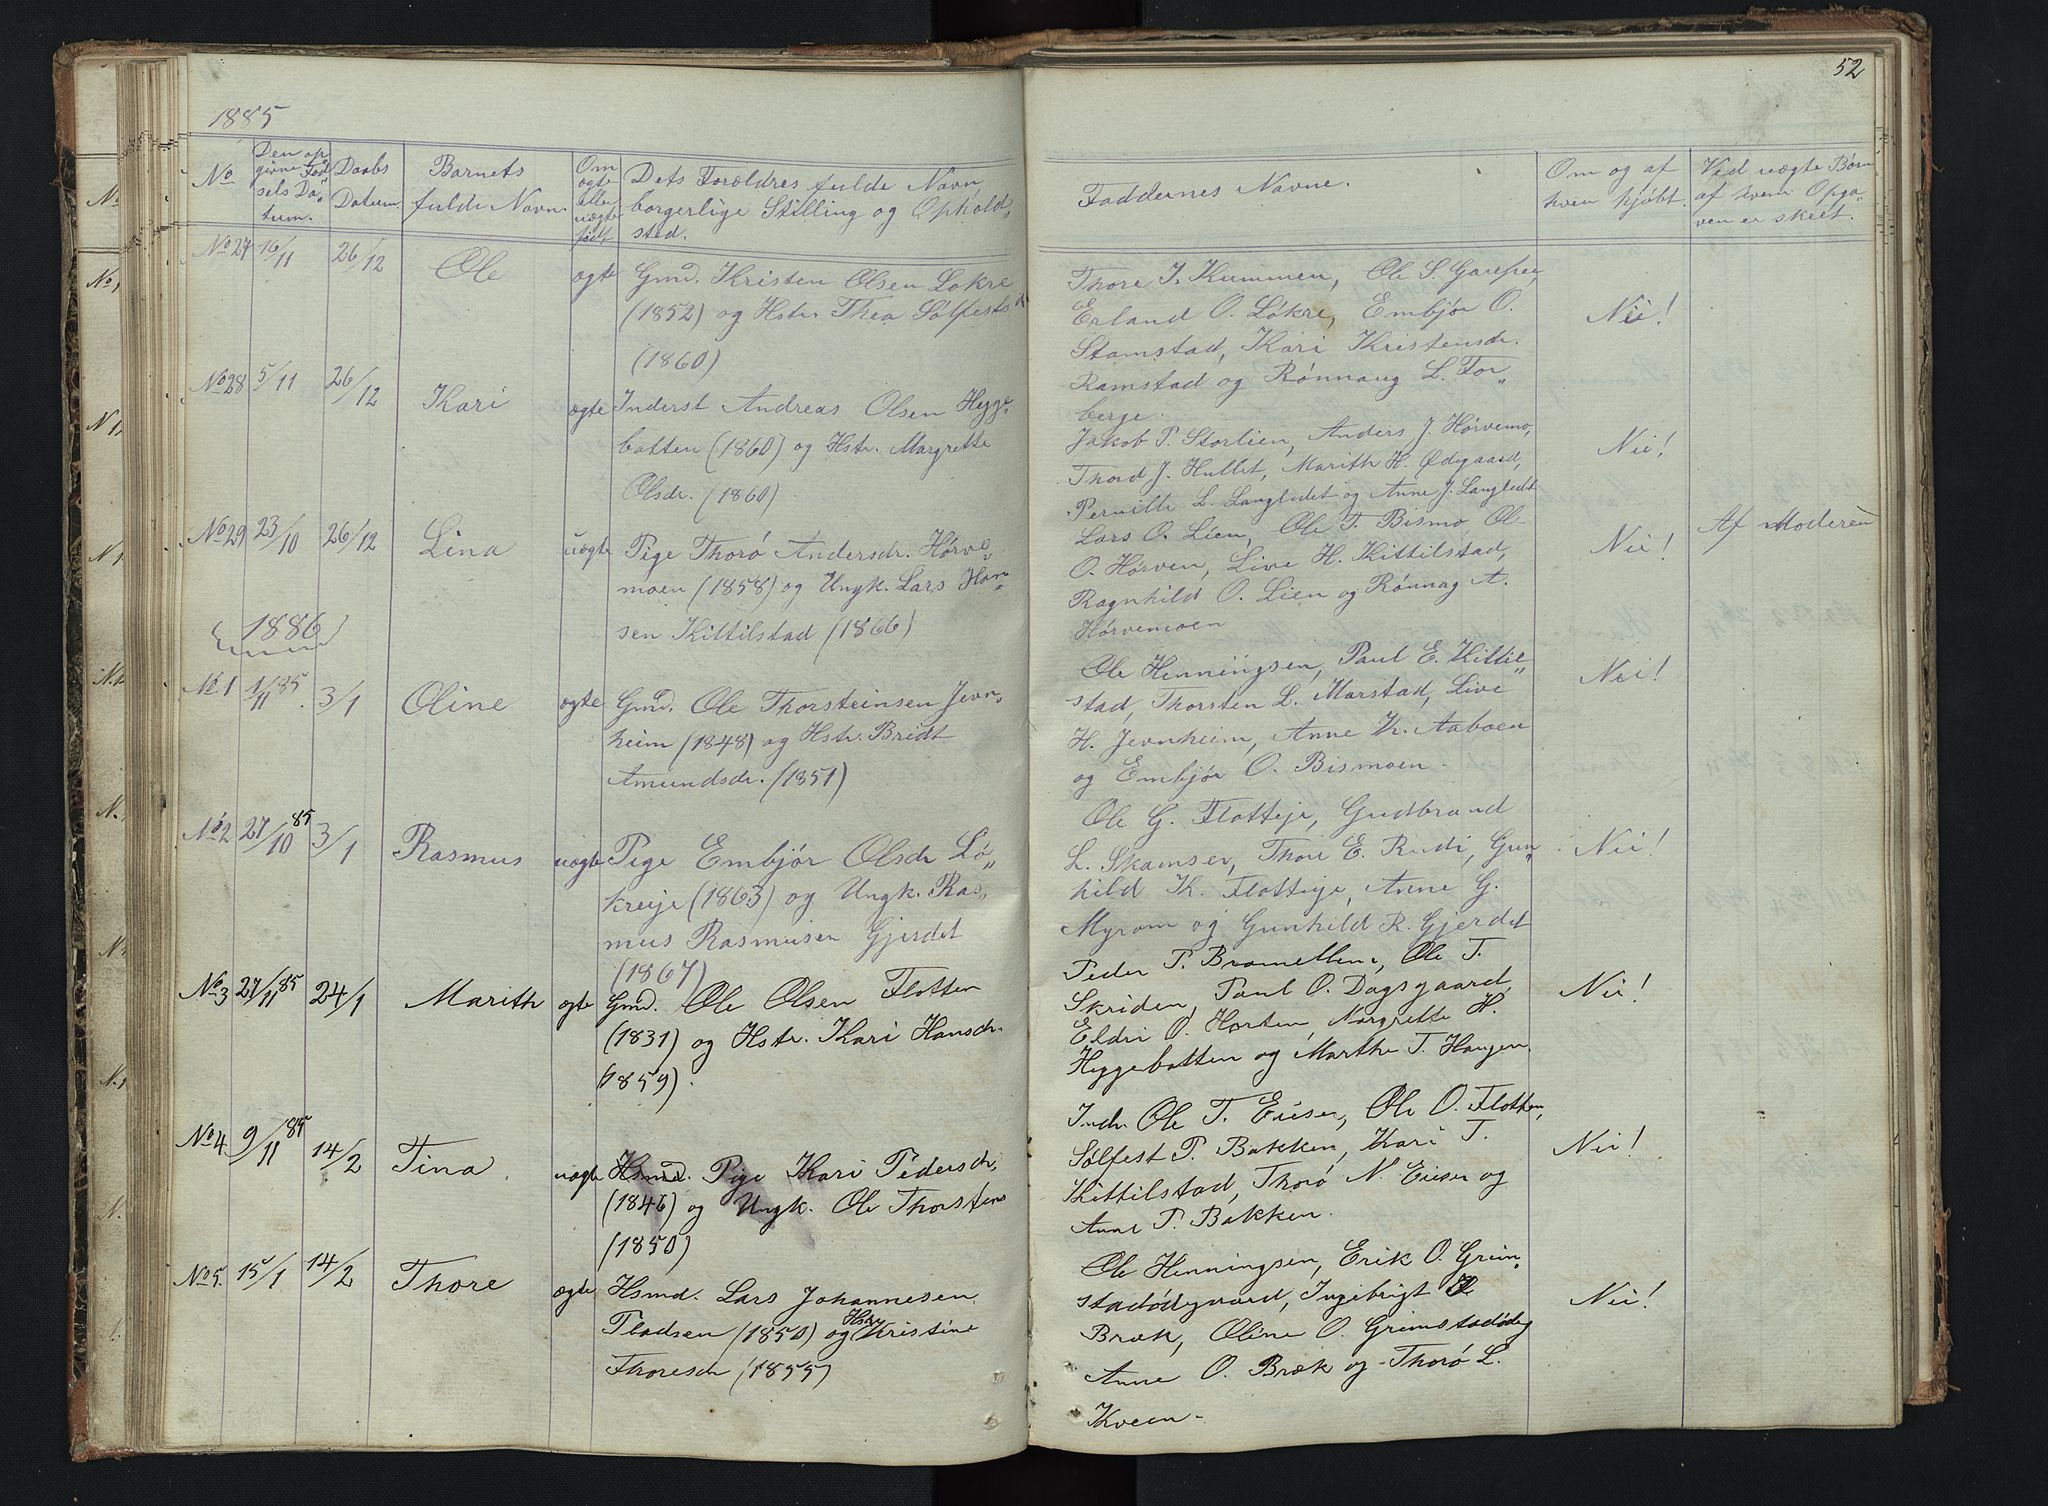 52
1885
No
Den op
givne Fød
sels Da
tum.
Daabs
Datum.
Barnets
fulde Navn.
Om
ægte
eller
uægte
født
Dets Forældres fulde Navn,
borgerlige Stilling og Ophold„
sted.
Faddernes Navne.
Om og af
hvem hjøbt.
Ved uægte Børn
af hvem Opga„
ven er skeet.
No 27 16/11 26/12 Ole ægte Gmd. Kristen Olsen Løkre
(1852) og Hstr. Thea Sølfestsd
(1860)
Thore J. Kummen, Ole S.
Erland O. Løkre, Embjør O.
Stamstad, Kari Kristensdr.
Ramstad og Rønnaug L. For„
berge.
Nei!
No 28 5/11 26/12 Kari ægte Inderst Andreas Olsen Hegge„
batten (1860) og Hstr. Margrette
Olsdr. (1860).
Jakob P. Storlien, Anders J. Hørvemo,
Thord J. Hullet, Marith H. Ødegaard,
Pernille L. Langledet og Anne J. Langledet
Nei!
No 29 23/10 26/12 Lina uægte Pige Thorø Andersdr. Hørve„
moen (1858) og Ungk. Lars Han„
sen Kittilstad (1866)
Lars O. Lien, Ole T. Bismo Ol-
O. Hørven, Live H. Kittilstad,
Ragnhild O. Lien og Rønnag A.
Hørvemoen
Nei!
Af Moderen
1886
No 1 1/11 85. 3/1 Oline ægte Gmd. Ole Thorsteinsen Jevn„
heim (1848) og Hstr. Bridt
Amundsdr. (1851)
Ole Henningsen, Paul E. Kittil„
stad, Thorsten L. Marstad, Live
H. Jevnheim, Anne K. Aaboen
og Embjør O. Bismoen.
Nei!
No 2 27/10 85 3/1 Rasmus uægte Pige Embjør Olsdr Lø„
kreeje (1863) og Ungk. Ras„
mus Rasmusen Gjerdet
(1867)
Ole G. Flotteje, Gudbrand
L. Skamser, Thore E. Rudi, Gun„
hild K. Flotteje, Anne G.
Myrom og Gunhild R. Gjerdet
Nei!
No 3 27/11 85 24/1 Marith ægte Gmd. Ole Olsen Flotten
(1831) og Hstr. Kari Hansdr.
(1859).
Peder P. Bramellen, Ole T.
Skriden, Paul O. Dagsgaard,
Eldri O. Horten, Margrette H.
Heggebatten og Marthe T. Haugen.
Nei!
No 4 9/11 85 14/2 Tina uægte Hsmd. Pige Kari Pedersdr.
(1846) og Ungk. Ole Thorstens
(1850)
Indr. Ole T. Ekre, Ole O. Flotten,
Sølfest P. Bakken, Kari T.
Kittilstad, Thorø N. og
Anne P. Bakken.
Nei!
No 5. 15/1 14/2 Thore ægte Hsmd. Lars Johannesen
Fladsen (1850) og Hstr Kristine
Thoresdr (1855)
Ole Henningsen, Erik O. Grim„
stadødegaard, Ingebrigt
Bræk, Oline O. Grimstadødeg
Anne O. Bræk og Thorø L.
Kveen.
Nei!